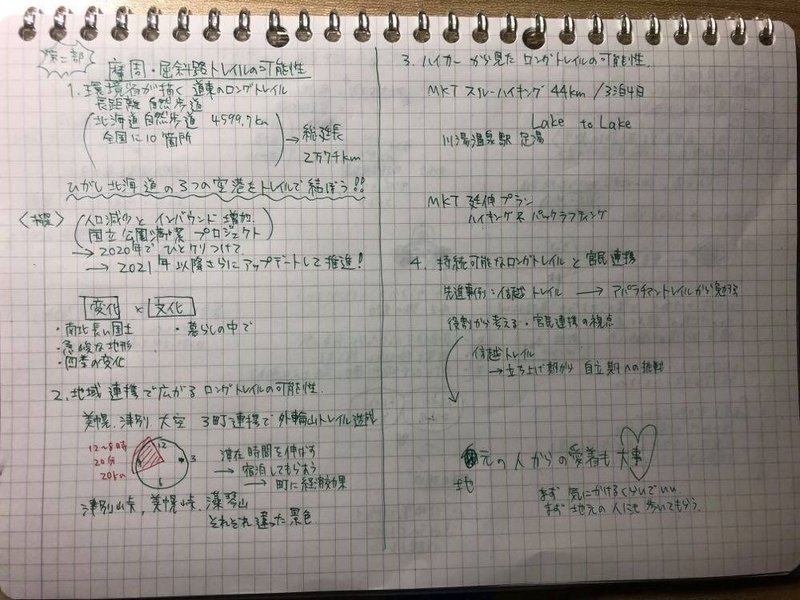 第二部
摩周・屈斜路トレイルの可能性
1. 環境省が描く道東のロングトレイル
長距離自然歩道
北海道自然歩道 4599.7km
全国に10箇所
→ 総延長
2万7千km
ひがし北海道の3つの空港をトレイルで結ぼう!!
人口減少とインバウンド増加
国立公園満喫プロジェクト
→ 2020年でひとくりつけて
→ 2021年以降さらにアップデートして推進!
変化 × 文化
・南北長い国土
・暮らしの中で
・急峻な地形
・四季の変化
2. 地域連携で広がるロングトレイルの可能性
美幌、津別、大空 3町で連携で外輪山トレイル
12〜8時
20分
20km
12
3
6
滞在時間を伸ばす
→ 宿泊してもらおう
→ 町に経済効果
津別峠、美幌峠、藻琴山
それぞれ違った景色
3. ハイカーから見たロングトレイルの可能性
MKT スルーハイキング 44km /3泊4日
Lake to Lake
川湯温泉駅 足湯
MKT 延伸プラン
ハイキング&パックラフティング
4. 持続可能なロングトレイルと官民連携
先進事例:信越トレイル → アパラチアントレイルから
役割から考える・官民連携の視点
信越トレイル
→ 立ち上げ期から自立期への挑戦
元の人からの愛着も大事
地
まず気にかけるくらいでいい
まず地元の人にも歩いてもらう。